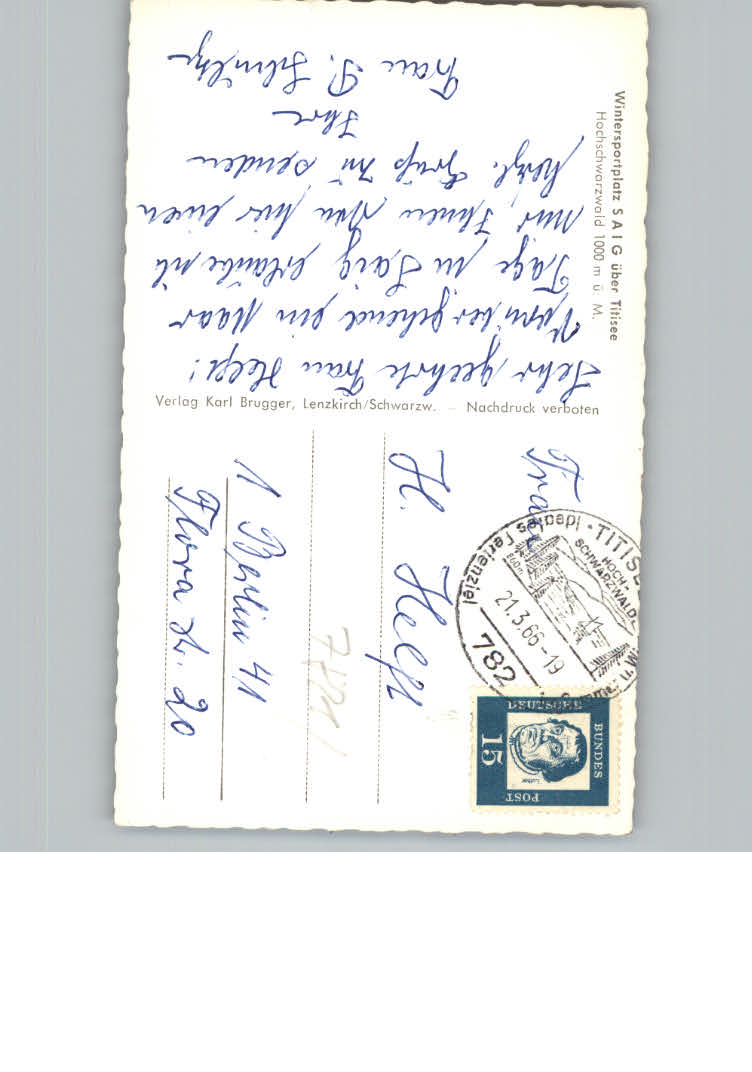 Wintersportplatz SAIG über Titisee
Hochschwarzwald 1000 m ü. M.
Sehr geehrte Frau Helft!
Vorübergehend ein Paar
Tage in Saig erlaube ich
mir Ihnen von hier einen
herzl. Gruß zu senden
Ihre
Frau P.
Verlag Karl Brugger, Lenzkirch/Schwarzw. – Nachdruck verboten
Frau
H. Helft
1 Berlin 41
Flora str. 20
TITISEE
HOCH-
SCHWARZWALD
Ideales Ferienziel
860 m
21.3.66-19
782
DEUTSCHE
BUNDES
POST
15
Luther